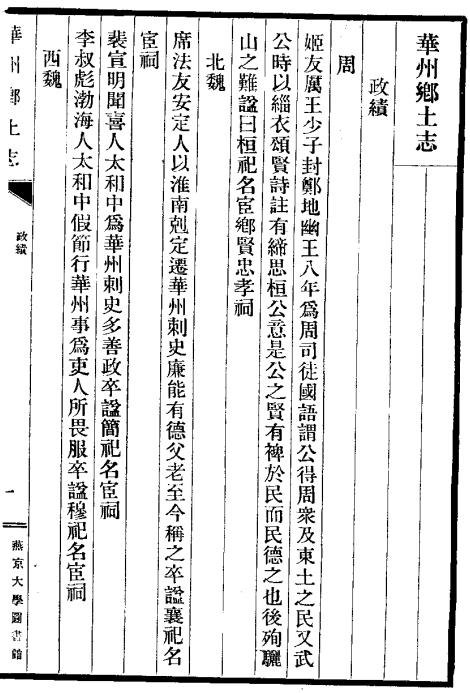 華州鄉土志
政績
周
姬友厲王少子封鄭地幽王八年爲周司徒國語謂公得周衆及東土之民又武
公時以緇衣頌賢詩註有締思桓公意是公之賢有裨於民而民德之也後殉驪
山之難諡曰桓祀名宦鄉賢忠孝祠
北魏
席法友安定人以淮南剋定遷華州刺史廉能有德父老至今稱之卒諡襄祀名
宦祠
裴宣明聞喜人太和中爲華州刺史多善政卒諡簡祀名宦祠
李叔彪渤海人太和中假節行華州事爲吏人所畏服卒諡穆祀名宦祠
西魏
華州鄉土志
政績
一
燕京大學圖書館